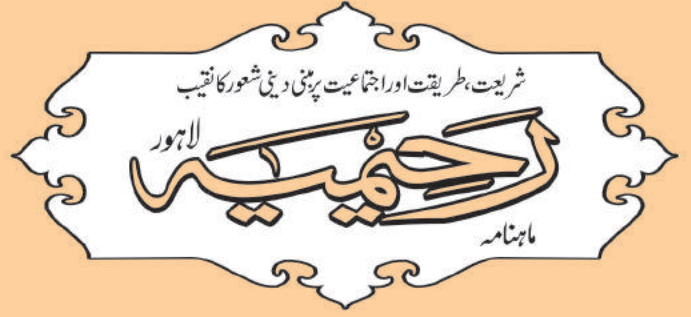 شریعت، طریقت اور اجتماعیت پر مبنی دینی شعور کا نقیب
ماہنامہ
رحیمیہ
لاہور